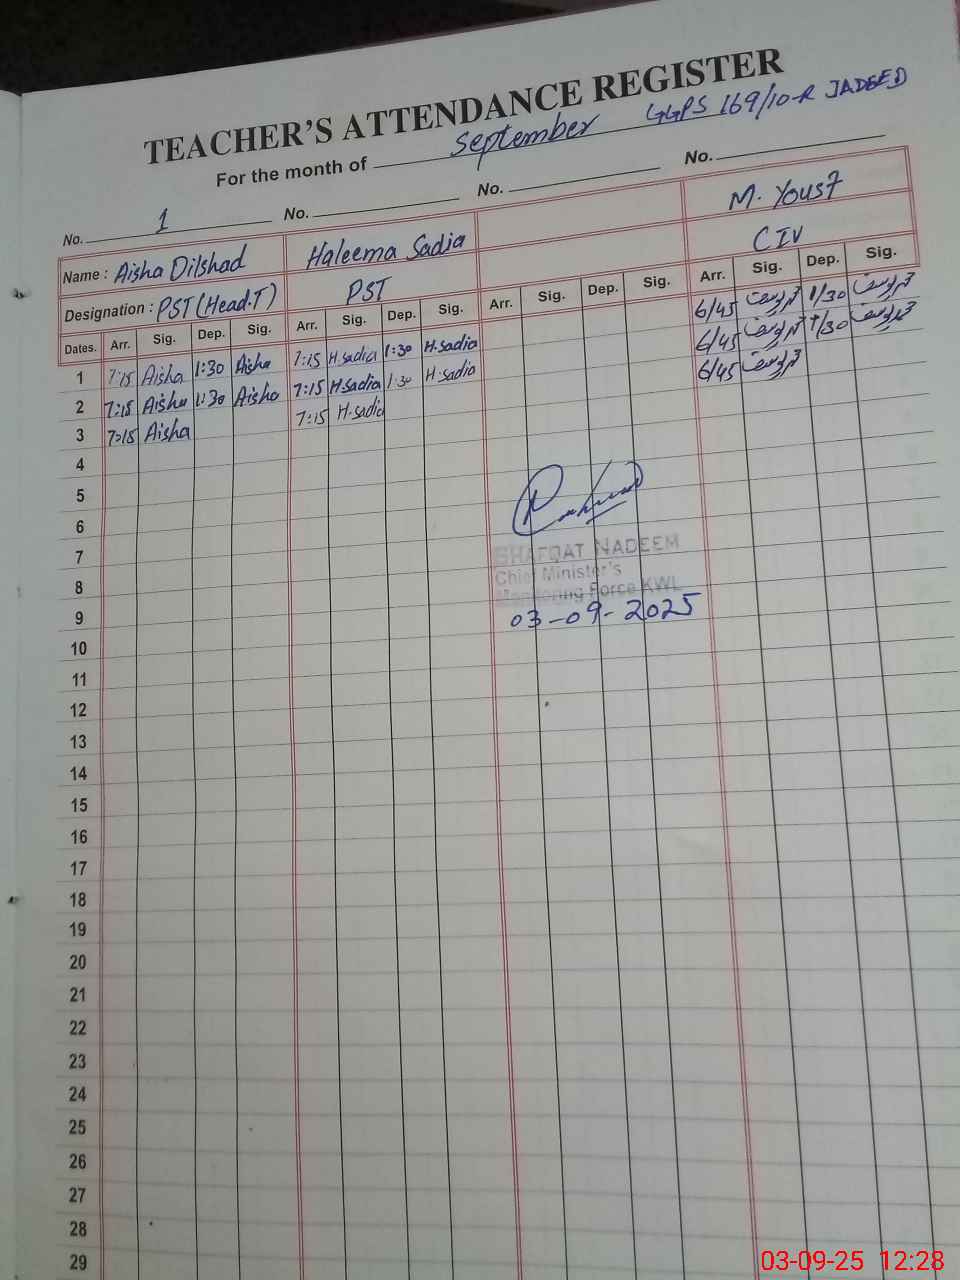 TEACHER'S ATTENDANCE REGISTER
For the month of September GGPS 169/10-R JADEED
No. 1 No. No. No.
Name : Aisha Dilshad Haleema Sadia M. Yousf
Designation : PST (Head.T) PST CIV
Dates. Arr. Sig. Dep. Sig. Arr. Sig. Dep. Sig. Arr. Sig. Dep. Sig. Arr. Sig. Dep. Sig.
1 7:15 Aisha 1:30 Aisha 7:15 H.sadia 1:30 H.sadia 6/45 محمد یوسف 1/30 محمد یوسف
2 7:15 Aisha 1:30 Aisha 7:15 H.sadia 1:30 H.sadia 6/45 محمد یوسف 1/30 محمد یوسف
3 7:15 Aisha 7:15 H.sadia 6/45 محمد یوسف
4
5
6
7
SHAFQAT NADEEM
8
Chief Minister's
Monitoring Force KWL
9
03-09-2025
10
11
12
13
14
15
16
17
18
19
20
21
22
23
24
25
26
27
28
29
03-09-25 12:28